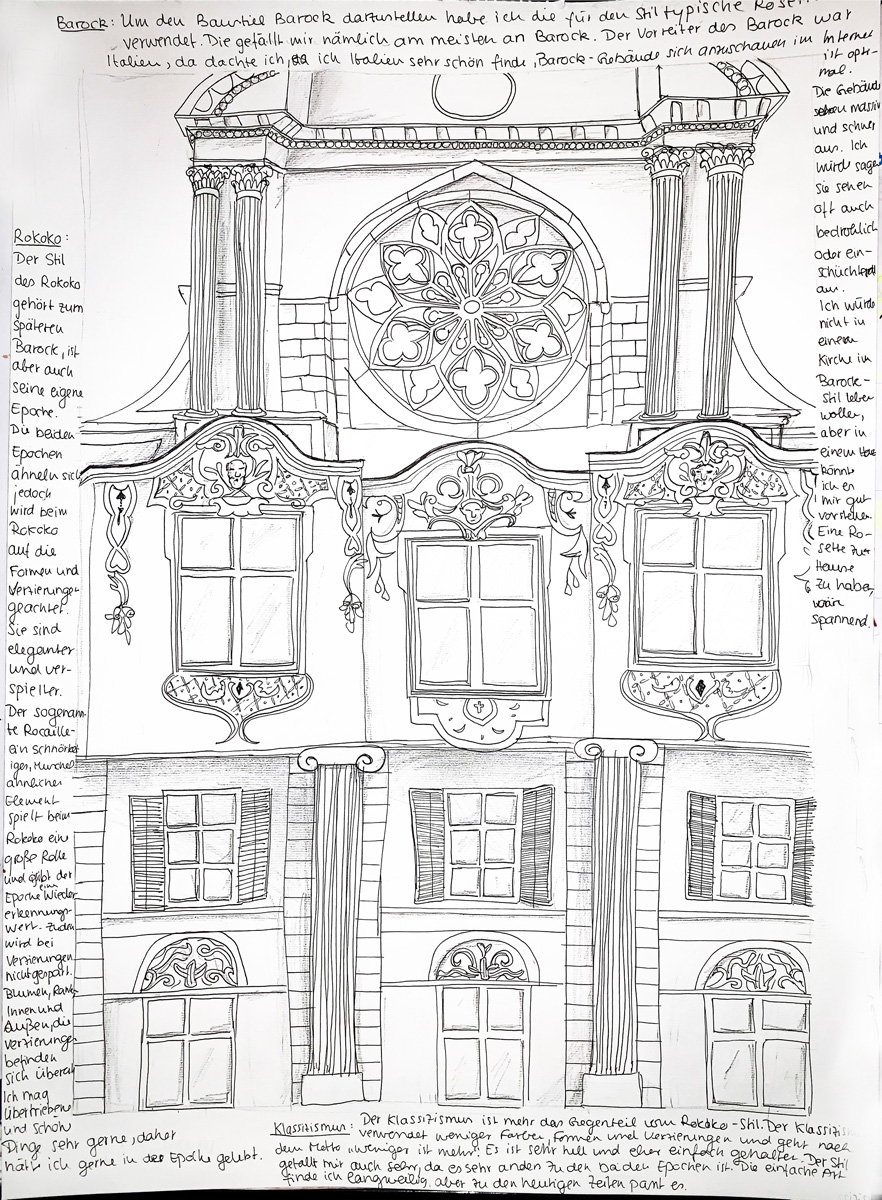 Barock: Um den Baustiel Barock darzustellen habe ich die für den Stil typische Rosen
verwendet. Die gefällt mir nämlich am meisten an Barock. Der Vorreiter des Barock war
Italien, da dachte ich, da ich Italien sehr schön finde, Barock-Gebäude sich anzuschauen im Internet
ist opti-
mal.
Die Gebäude
sehen massiv
und schwer
aus. Ich
würd sagen
Sie sehen
oft auch
bedrohlich
oder ein-
schüchternd
aus.
Ich würde
nicht in
einem
Kirche im
Barock-
Stil leben
wollen,
aber in
einem Haus
könnt
ich es
mir gut
vorstellen.
Eine Ro-
sette zur
Hause
zu haben,
wäre
spannend.
Rokoko:
Der Stil
des Rokoko
gehört zum
späteren
Barock, ist
aber auch
seine eigene
Epoche.
Die beiden
Epochen
ähneln sich
jedoch
wird beim
Rokoko
auf die
Formen und
Verzierungen
geachtet.
Sie sind
eleganter
und ver-
spielter.
Der sogenann-
te Rocaille-
ein schnörkel
iges, Muschel
ähnliches
Element
spielt beim
Rokoko eine
große Rolle
und gibt der
Epoche ein Wieder
erkennungs-
wert. Zudem
wird bei
Verzierungen
nicht gespart.
Blumen, Ranken
Innen und
Außen, die
Verzierungen
befinden
sich überall
Ich mag
übertrieben
und schön
Dinge sehr gerne, daher
hätt ich gerne in der Epoche gelebt.
Klassizismus: Der Klassizismus ist mehr das Gegenteil vom Rokoko-Stil. Der Klassizis
verwendet weniger Farben, Formen und Verzierungen und geht nach
dem Motto „weniger ist mehr". Es ist sehr hell und eher einfach gehalten. Der Stil
gefällt mir auch sehr, da es sehr anders zu den beiden Epochen ist. Die einfache Art
finde ich langweilig, aber zu den heutigen Zeiten passt es.